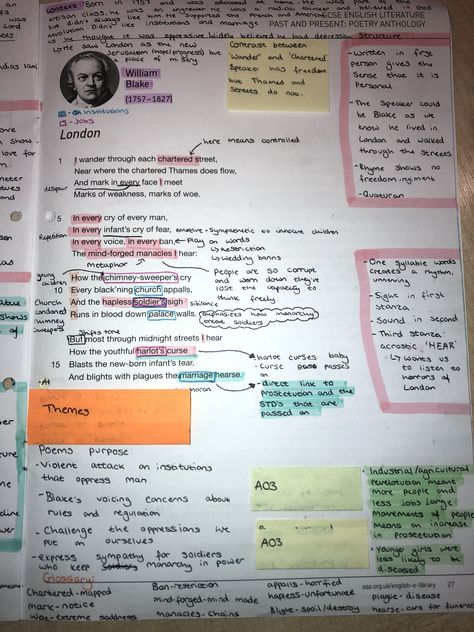 Context: Born in 1757 and was educated at home. He was part of the
believed in God
but didn't always like him. Supported the French and American
GCSE ENGLISH LITERATURE
Revolution. Didn't like institutions and marriage
PAST AND PRESENT: POETRY ANTHOLOGY
as he thought it was oppressive. Widely believed he had depression
Structure
↳ He saw London as the new
Jerusalem (hopeful progress) but
a place of misery
William
Blake
(1757–1827)
- Institutions
- Jobs
Contrast between
'wander' and 'chartered'
Speaker has freedom
but Thames and
Streets do not.
- written in first
person gives the
Sense that it is
Personal
- The Speaker could
be Blake as we
know he lived in
London and walked
through the streets
- Rhyme shows no
freedom, rigiment
- Quatrain
London
here means controlled
1 I wander through each chartered street,
Near where the chartered Thames does flow,
And mark in every face I meet
despair
Marks of weakness, marks of woe.
5 In every cry of every man,
In every infant's cry of fear,
emotive - Sympathetic to innocent children
Repetition
In every voice, in every ban,
Play on words
↳ restriction
The mind-forged manacles I hear:
↳ wedding banns
metaphor
young
children
How the chimney-sweeper's cry
People are so corrupt
and worn down they've
lose the capacity to
think freely
10 Every black'ning church appalls,
Church
condoned
Chimney
Sweepers
And the hapless soldier's sigh
Sibilance
Runs in blood down palace walls.
emphasizes how monarchy
treat soldiers
Shifts tone
But most through midnight streets I hear
How the youthful harlot's curse
15 Blasts the new-born infant's tear,
And blights with plagues the marriage hearse.
harlot curses baby
- Curse passes
on
- direct link to
prostetution and the
STD's that are
passed on
- One syllable words
creates a rhythm,
unnerving
- Sight in first
stanza
- Sound in second
- Third stanza:
acrostic 'HEAR'
↳ wants us
to listen to
horrors of
London
Themes
Poems purpose:
- Violent attack on institutions
that oppress man.
- Blake's voicing concerns about
rules and regulation
- Challenge the oppressions we
put on ourselves
- express sympathy for soldiers
who keep monarchy in power
AO3
AO3
- Industrial/agricultural
revolution meant
more people and
less jobs. Large
movements of people
means an increase
in prostetution
- younger girls were
less likely to be
diseased
Glossary:
Chartered - mapped
Ban - restriction
appalls - horrified
aqa.org.uk/english-e-library 27
mark - notice
mind-forged - mind made
hapless - unfortunate
plague - disease
woe - extreme sadness
manacles - chains
Blight - spoil/destroy
hearse - cars for funerals